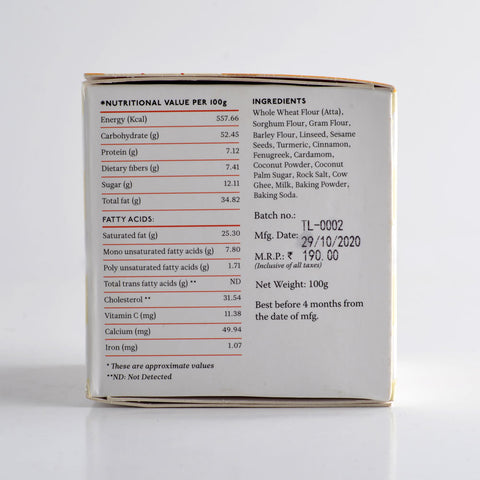 *NUTRITIONAL VALUE PER 100g
Energy (Kcal) 557.66
Carbohydrate (g) 52.45
Protein (g) 7.12
Dietary fibers (g) 7.41
Sugar (g) 12.11
Total fat (g) 34.82
FATTY ACIDS:
Saturated fat (g) 25.30
Mono unsaturated fatty acids (g) 7.80
Poly unsaturated fatty acids (g) 1.71
Total trans fatty acids (g) ** ND
Cholesterol ** 31.54
Vitamin C (mg) 11.38
Calcium (mg) 49.94
Iron (mg) 1.07
* These are approximate values
**ND: Not Detected
INGREDIENTS
Whole Wheat Flour (Atta),
Sorghum Flour, Gram Flour,
Barley Flour, Linseed, Sesame
Seeds, Turmeric, Cinnamon,
Fenugreek, Cardamom,
Coconut Powder, Coconut
Palm Sugar, Rock Salt, Cow
Ghee, Milk, Baking Powder,
Baking Soda.
Batch no.: TL-0002
Mfg. Date: 29/10/2020
M.R.P.: ₹ 190.00
(Inclusive of all taxes)
Net Weight: 100g
Best before 4 months from
the date of mfg.